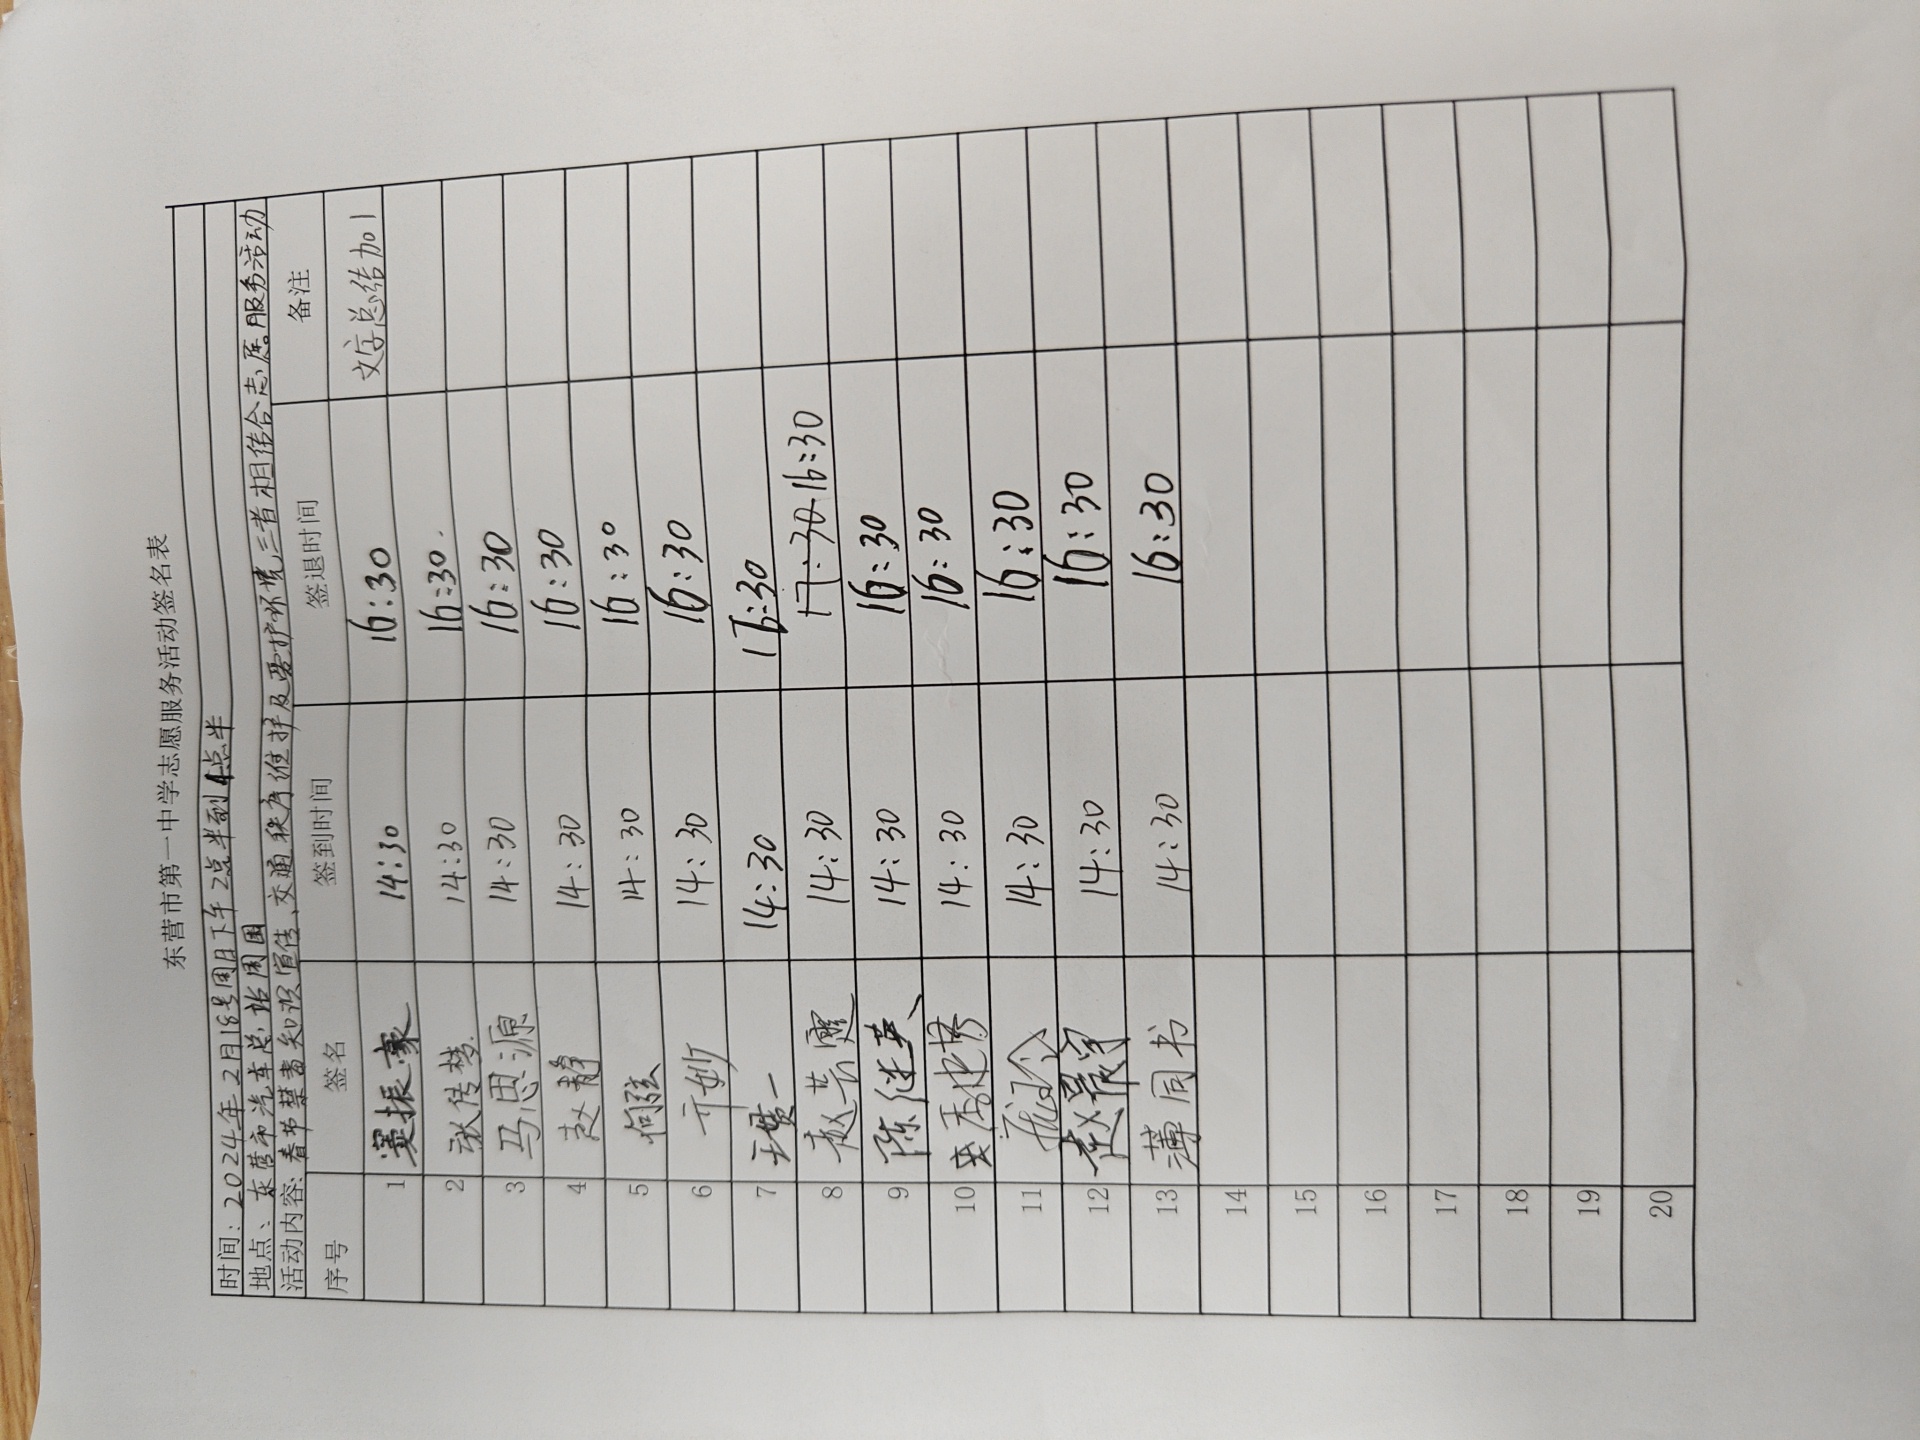 东营市第一中学志愿服务活动签名表
时间：2024年2月18号周日下午2点半到4点半
地点、东营市汽车总站周围
活动内容:春节禁毒知识宣传、交通秩序维护及爱护环境三者相结合志愿服务活动
序号 签名 签到时间 签退时间 备注
1 寞振豪 14:30 16:30 文字总结加1
2 14:30 16:30.
3 马思源 14:30 16:30
4 赵静 14:30 16:30
5 何弦 14:30 16:30
6 14:30 16:30
7 14:30 16:30
8 赵芸霆 14:30 17:30 16:30
9 陈继英 14:30 16:30
10 14:30 16:30
11 14:30 16:30
12 14:30 16:30
13 薄同书 14:30 16:30
14
15
16
17
18
19
20